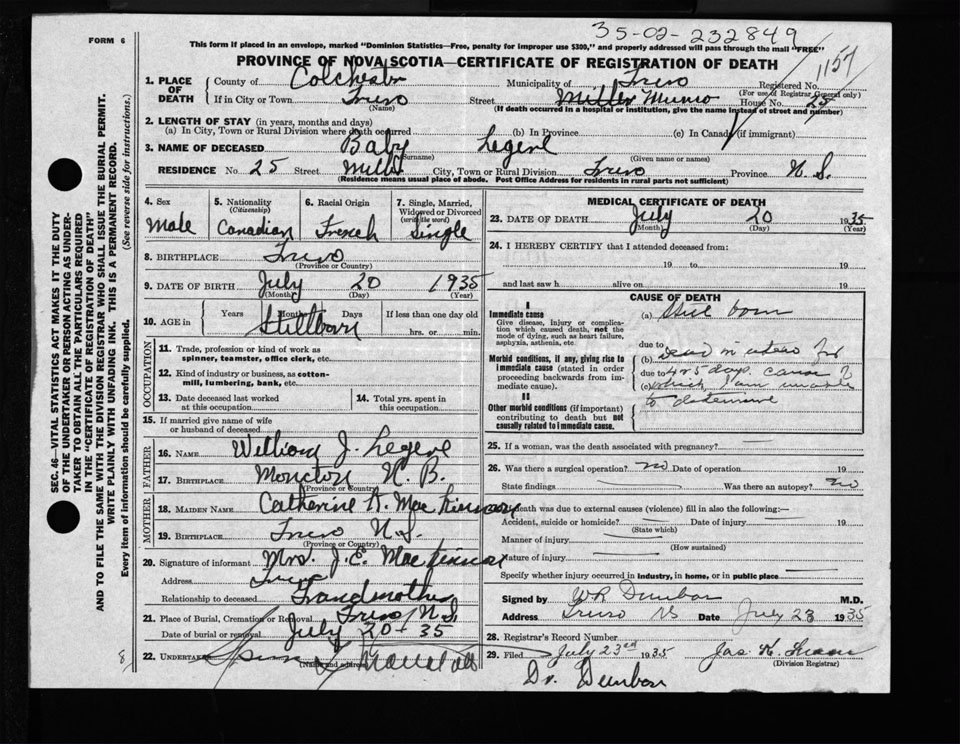 35-02-232849
FORM 6
This form if placed in an envelope, marked "Dominion Statistics—Free, penalty for improper use $300," and properly addressed will pass through the mail "FREE"
PROVINCE OF NOVA SCOTIA—CERTIFICATE OF REGISTRATION OF DEATH
1157
1. PLACE OF DEATH
County of Colchester Municipality of Truro Registered No.
(For use of Registrar General only)
If in City or Town Truro Street Miller Munro House No. 25
(Name) (If death occurred in a hospital or institution, give the name instead of street and number)
2. LENGTH OF STAY (in years, months and days)
(a) In City, Town or Rural Division where death occurred (b) In Province (c) In Canada (if immigrant)
3. NAME OF DECEASED Baby Legere
(Surname) (Given name or names)
RESIDENCE No 25 Street City, Town or Rural Division Truro Province N.S.
(Residence means usual place of abode. Post Office Address for residents in rural parts not sufficient)
4. Sex 5. Nationality (Citizenship) 6. Racial Origin 7. Single, Married, Widowed or Divorced (write the word)
Male Canadian French Single
8. BIRTHPLACE Truro
(Province or Country)
9. DATE OF BIRTH July 20 1935
(Month) (Day) (Year)
10. AGE in Years Months Days If less than one day old
Stillborn hrs. or min.
OCCUPATION
11. Trade, profession or kind of work as spinner, teamster, office clerk, etc.
12. Kind of industry or business, as cotton-mill, lumbering, bank, etc.
13. Date deceased last worked at this occupation
14. Total yrs. spent in this occupation
15. If married give name of wife or husband of deceased
FATHER
16. Name William J. Legere
17. BIRTHPLACE Moncton N.B.
(Province or Country)
MOTHER
18. MAIDEN NAME Catherine A. MacKinnon
19. BIRTHPLACE Truro N.S.
(Province or Country)
20. Signature of informant Mrs. J.E. MacKinnon
Address Truro
Relationship to deceased Grandmother
21. Place of Burial, Cremation or Removal Truro N.S.
Date of burial or removal July 20-35
22. UNDERTAKER
(Name and address)
MEDICAL CERTIFICATE OF DEATH
23. DATE OF DEATH July 20 1935
(Month) (Day) (Year)
24. I HEREBY CERTIFY that I attended deceased from:
19 to 19
and last saw h alive on 19
CAUSE OF DEATH
I
Immediate cause
Give disease, injury or complication which caused death, not the mode of dying, such as heart failure, asphyxia, asthenia, etc.
(a) Still born
due to
Morbid conditions, if any, giving rise to immediate cause (stated in order proceeding backwards from immediate cause).
(b) Dead in utero for
due to 4 or 5 days. cause of
(c) which I am unable
to determine
II
Other morbid conditions (if important) contributing to death but not causally related to immediate cause.
25. If a woman, was the death associated with pregnancy?
26. Was there a surgical operation? no Date of operation 19
State findings Was there an autopsy? no
27. If death was due to external causes (violence) fill in also the following:—
Accident, suicide or homicide? Date of injury 19
(State which)
Manner of injury
(How sustained)
Nature of injury
Specify whether injury occurred in industry, in home, or in public place
Signed by W R Dunbar M.D.
Address Truro NS Date July 23 1935
28. Registrar's Record Number
29. Filed July 23rd 1935
(Division Registrar)
Dr. Dunbar
SEC. 46—VITAL STATISTICS ACT MAKES IT THE DUTY
OF THE UNDERTAKER OR PERSON ACTING AS UNDER-
TAKER TO OBTAIN ALL THE PARTICULARS REQUIRED
IN THE "CERTIFICATE OF REGISTRATION OF DEATH"
AND TO FILE THE SAME WITH THE DIVISION REGISTRAR WHO SHALL ISSUE THE BURIAL PERMIT.
WRITE PLAINLY WITH UNFADING INK. THIS IS A PERMANENT RECORD.
Every item of information should be carefully supplied. (See reverse side for instructions.)
8